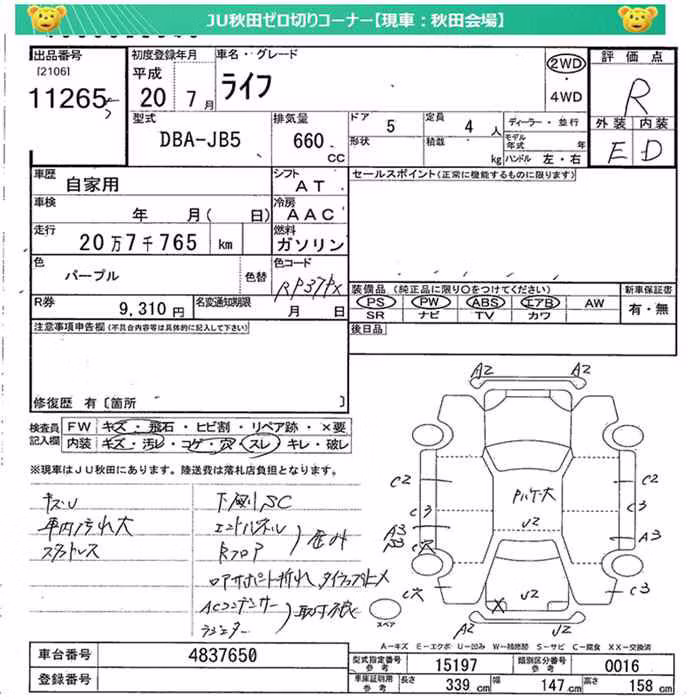 JU秋田ゼロ切りコーナー【現車：秋田会場】
出品番号
[2106]
11265
初度登録年月
平成
20 7月
車名・グレード
ライフ
2WD
4WD
評価点
R
型式
DBA-JB5
排気量
660
CC
ドア
5
定員
4 人
形状
積載
kg
ディーラー・並行
モデル年式 年
ハンドル 左・右
外装 内装
E D
車歴
自家用
シフト
AT
セールスポイント(正常に機能するものに限ります)
車検
年 月( 日)
冷房
AAC
走行
20万7千765 km
燃料
ガソリン
色
パープル
色替
色コード
RP37PX
R券
9,310円
名変通知期限
月 日
装備品 (純正品に限り○をつけてください)
PS PW ABS エアB AW
SR ナビ TV カワ
新車保証書
有・無
後日品
注意事項申告欄(不具合内容等は具体的に記入して下さい)
修復歴 有〔箇所 〕
検査員記入欄
FW キズ・飛石・ヒビ割・リペア跡・×要
内装 キズ・汚レ・コゲ・穴・スレ・キレ・破レ
※現車はJU秋田にあります。陸送費は落札店負担となります。
キズU
車内汚れ大
スタットレス
下廻りSC
エンドパネル
Rフロア
歪み
ロアサポート折れ タイラップ止メ
ACコンデンサー
ラジエター
取付不良
A2 A2
C2 C2
Pルーフ大
C3 C3
U2
A3 A3
C3
U2
A2 U2
スペア
A－キズ E－エクボ U－凹み W－補修跡 S－サビ C－腐食 XX－交換済
車台番号
4837650
登録番号
型式指定番号 参考
15197
類別区分番号 参考
0016
車庫証明用 参考
長さ 339 cm
幅 147 cm
高さ 158 cm